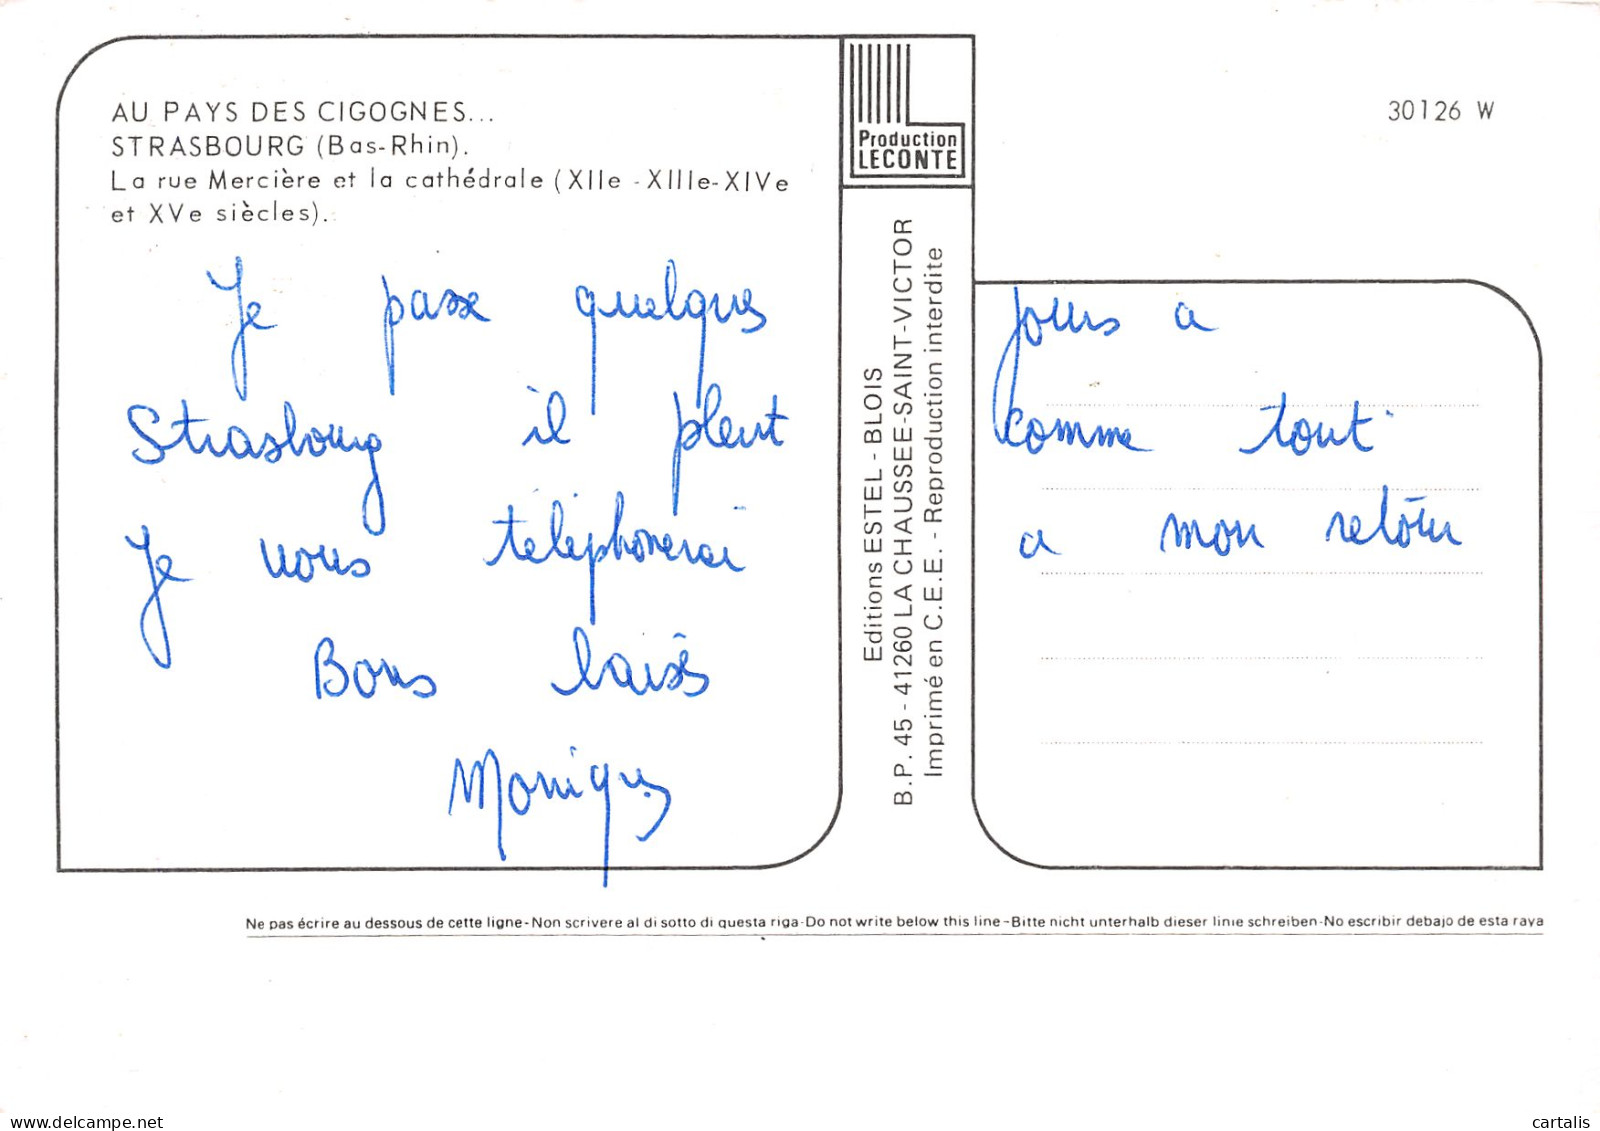 AU PAYS DES CIGOGNES...
STRASBOURG (Bas-Rhin).
La rue Mercière et la cathédrale (XIIe - XIIIe-XIVe
et XVe siècles).
Production
LECONTE
30126 W
Je passe quelques jours a
Strasbourg il pleut comme tout
Je vous téléphonerai a mon retour
Bons baisés
Monique
Editions ESTEL - BLOIS
B.P. 45 - 41260 LA CHAUSSEE-SAINT-VICTOR
Imprimé en C.E.E. - Reproduction interdite
Ne pas écrire au dessous de cette ligne-Non scrivere al di sotto di questa riga-Do not write below this line-Bitte nicht unterhalb dieser linie schreiben-No escribir debajo de esta raya
delcampe.net
cartalis